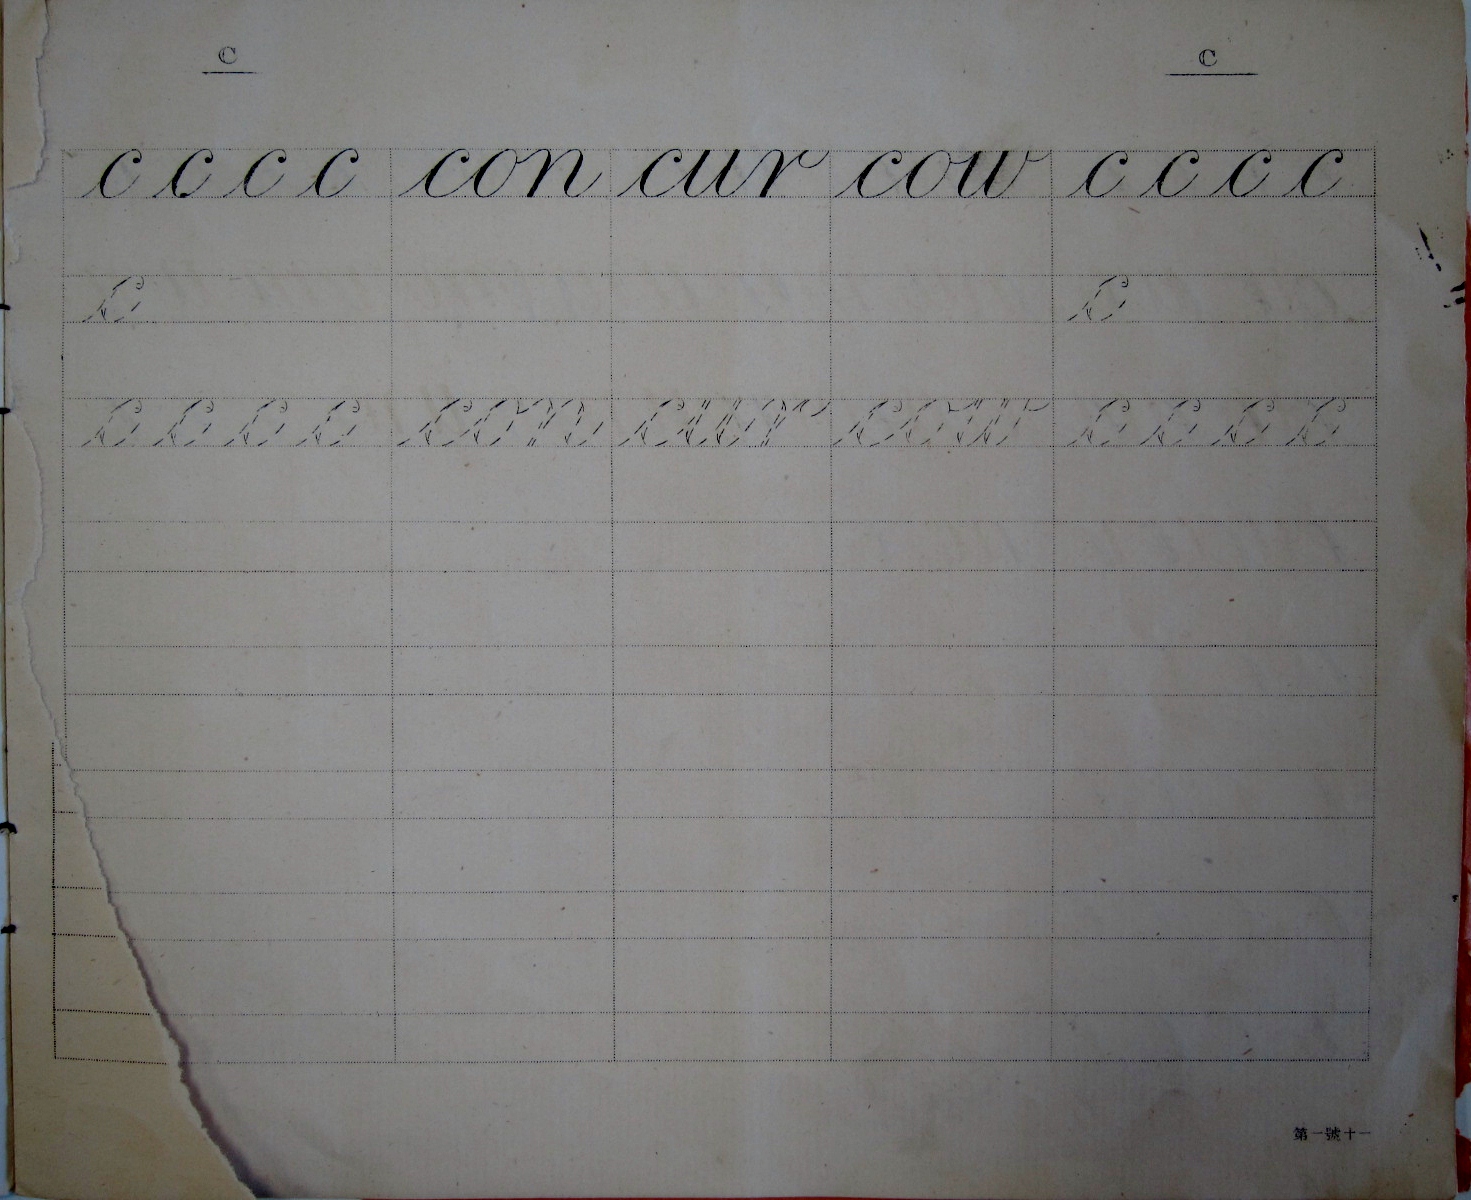 c c
c c c c con cur cow c c c c
c c
c c c c con cur cow c c c c
第一號十一